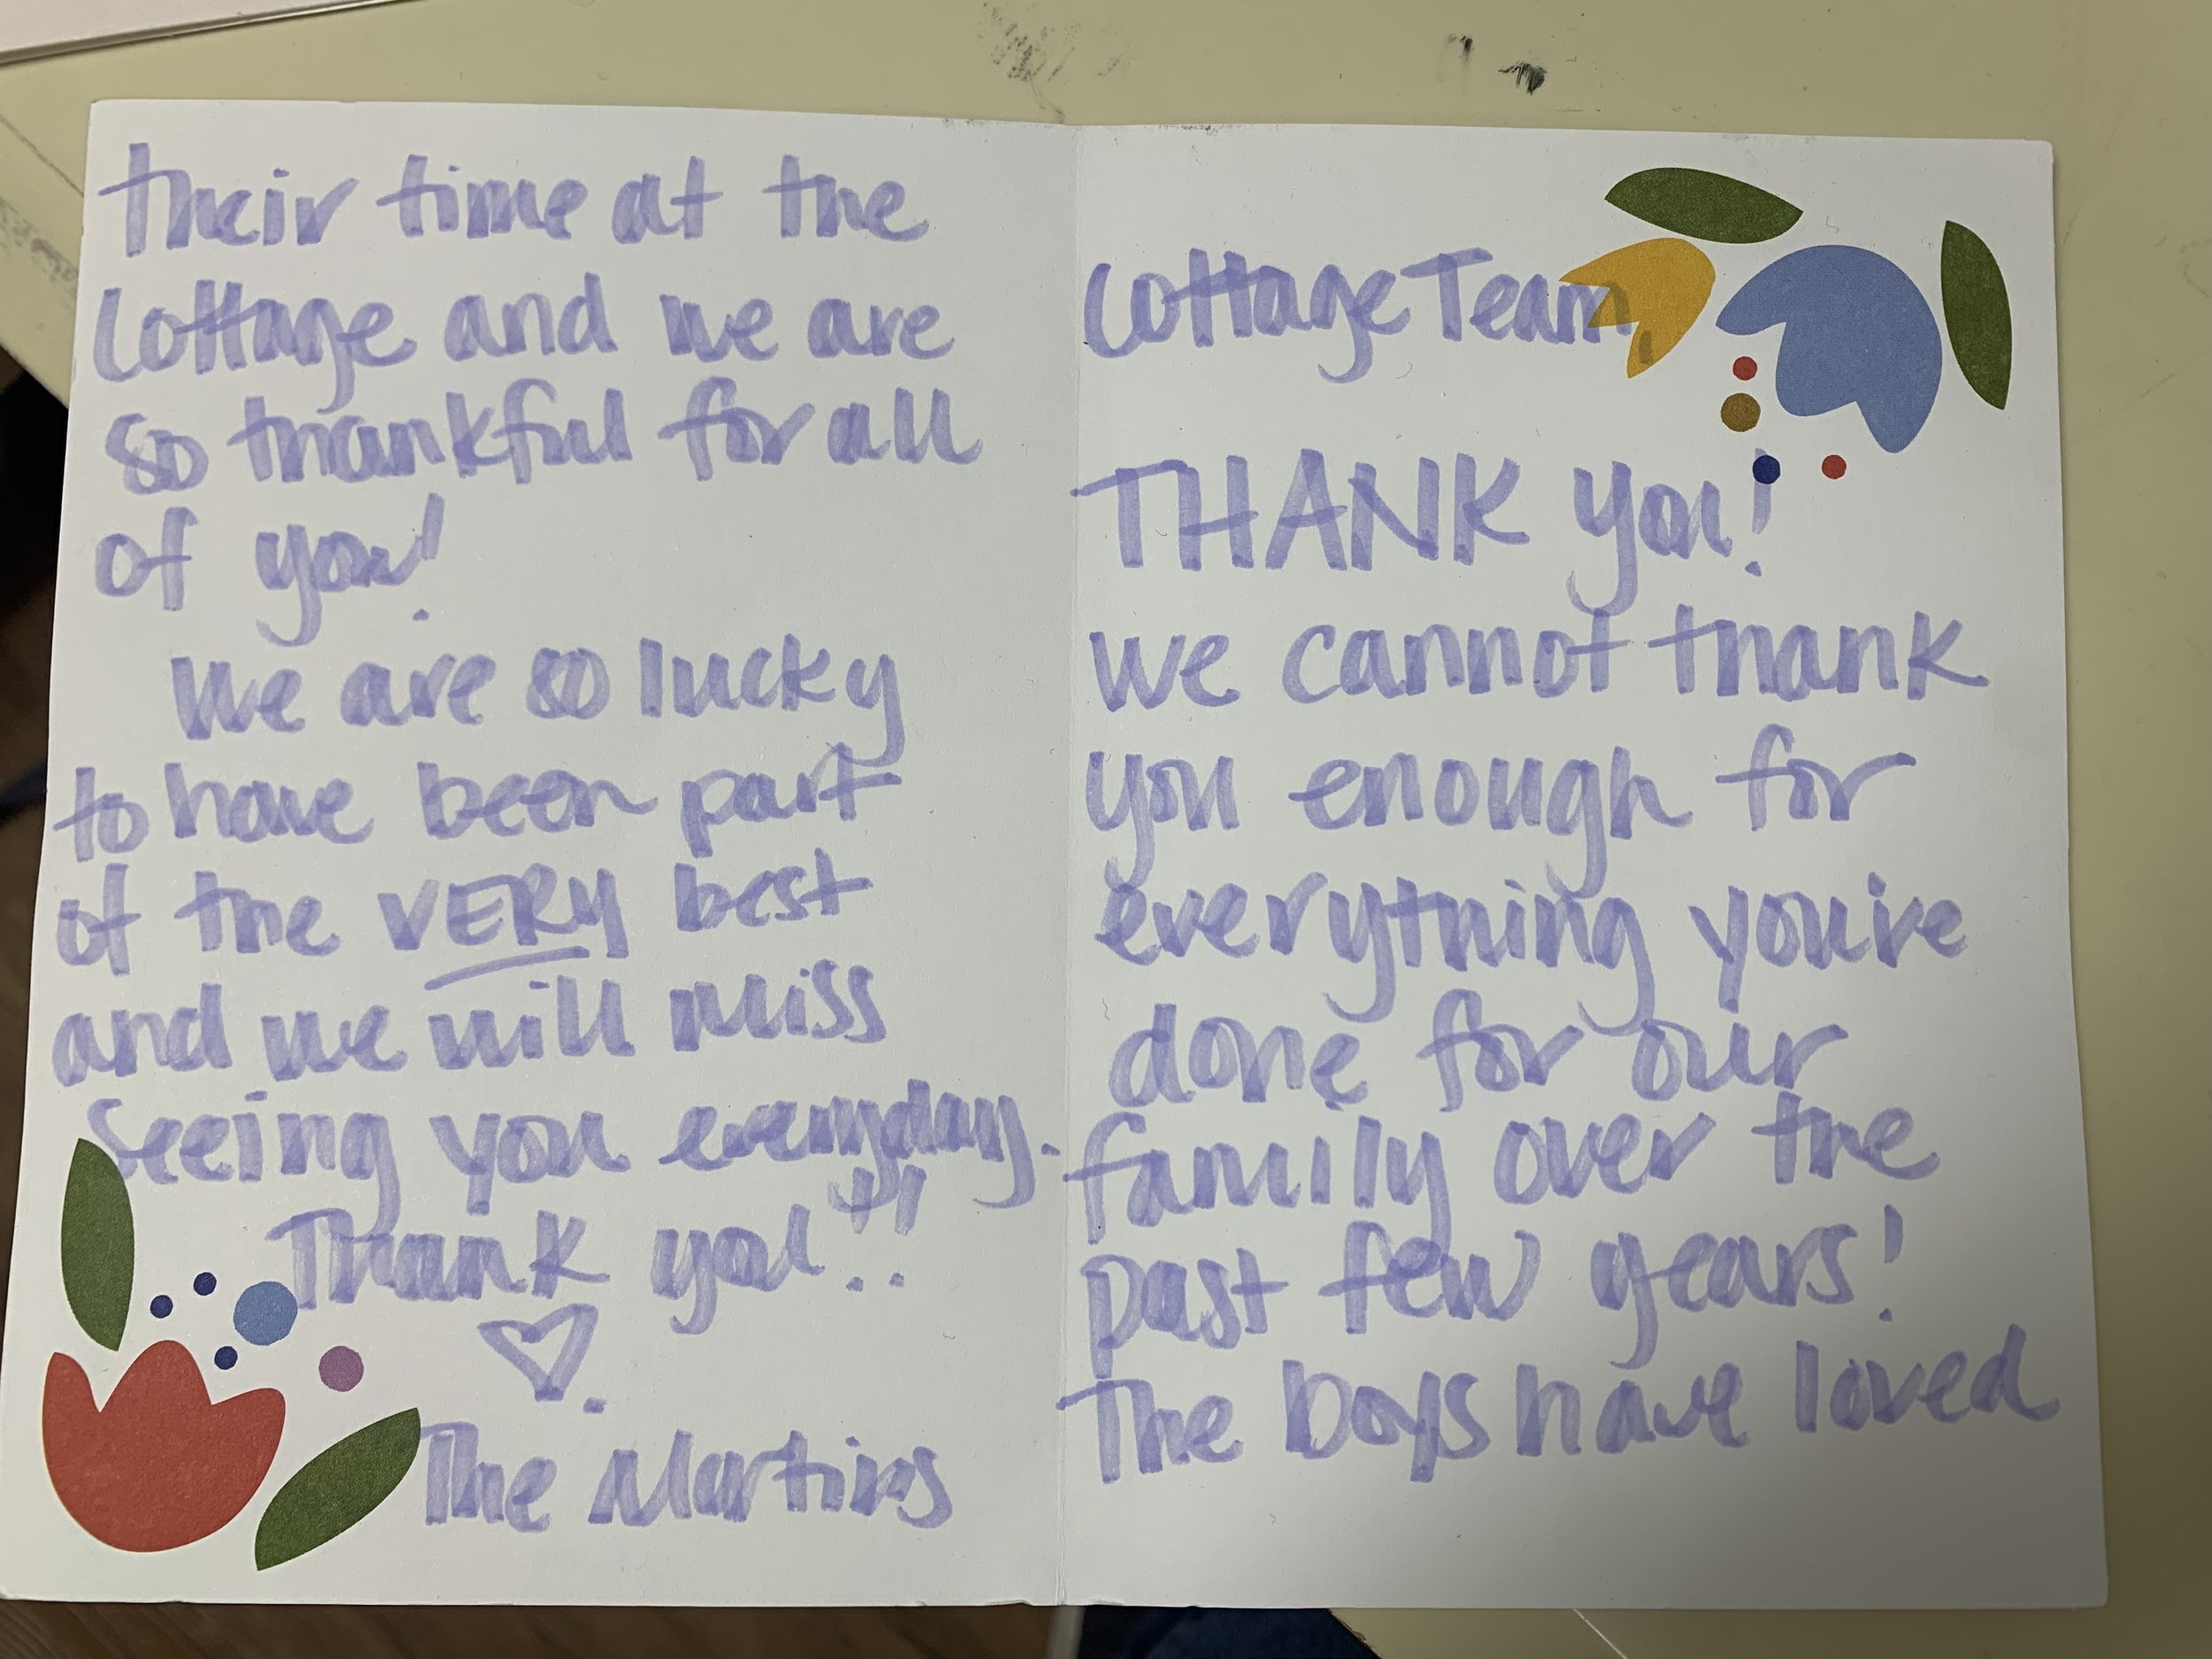 Cottage Team,
THANK you!
we cannot thank
you enough for
everything you've
done for our
family over the
past few years!
The boys have loved
their time at the
Cottage and we are
so thankful for all
of you!
We are so lucky
to have been part
of the VERY best
and we will miss
seeing you everyday.
Thank you!!
The Martins